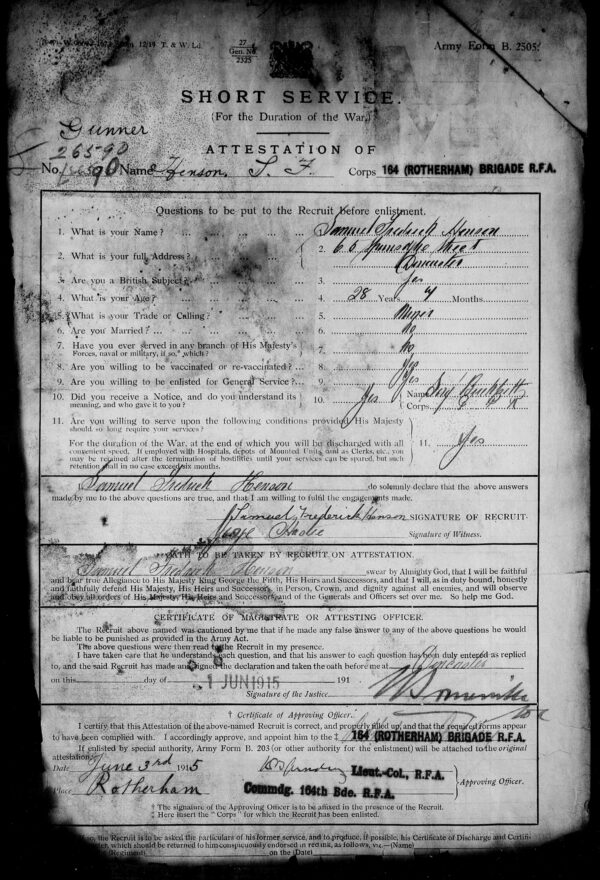 12/14 T. & W. Ld.
27
Gen. No.
2525
Army Form B. 2505.
SHORT SERVICE.
(For the Duration of the War.)
Gunner
26590
ATTESTATION OF
No. 90 Name Henson, S. F. Corps 164 (ROTHERHAM) BRIGADE R.F.A.
Questions to be put to the Recruit before enlistment.
1. What is your Name? ... 1. Samuel Fredrick Henson
2. What is your full Address? ... 2. 66 Street
Doncaster
3. Are you a British Subject? ... 3. Yes
4. What is your Age? ... 4. 28 Years 4 Months.
5. What is your Trade or Calling? ... 5. Miner
6. Are you Married? ... 6. No
7. Have you ever served in any branch of His Majesty's
Forces, naval or military, if so,* which? 7. No
8. Are you willing to be vaccinated or re-vaccinated? ... 8. Yes
9. Are you willing to be enlisted for General Service? ... 9. Yes
10. Did you receive a Notice, and do you understand its
meaning, and who gave it to you? ... 10. Yes Name
Corps
11. Are you willing to serve upon the following conditions provided His Majesty
should so long require your services?
For the duration of the War, at the end of which you will be discharged with all
convenient speed. If employed with Hospitals, depots of Mounted Units, and as Clerks, etc., you
may be retained after the termination of hostilities until your services can be spared, but such
retention shall in no case exceed six months. 11. Yes
Samuel Fredrick Henson do solemnly declare that the above answers
made by me to the above questions are true, and that I am willing to fulfil the engagements made.
Samuel Frederick Henson SIGNATURE OF RECRUIT
Signature of Witness.
OATH TO BE TAKEN BY RECRUIT ON ATTESTATION.
Samuel Fredrick Henson swear by Almighty God, that I will be faithful
and bear true Allegiance to His Majesty King George the Fifth, His Heirs and Successors, and that I will, as in duty bound, honestly
and faithfully defend His Majesty, His Heirs and Successors, in Person, Crown, and dignity against all enemies, and will observe
and obey all orders of His Majesty, His Heirs and Successors, and of the Generals and Officers set over me. So help me God.
CERTIFICATE OF MAGISTRATE OR ATTESTING OFFICER.
The Recruit above named was cautioned by me that if he made any false answer to any of the above questions he would
be liable to be punished as provided in the Army Act.
The above questions were then read to the Recruit in my presence.
I have taken care that he understands each question, and that his answer to each question has been duly entered as replied
to, and the said Recruit has made and signed the declaration and taken the oath before me at Doncaster
on this day of 1 JUN 1915 191 .
Signature of the Justice
† Certificate of Approving Officer.
I certify that this Attestation of the above-named Recruit is correct, and properly filled up, and that the required forms appear
to have been complied with. I accordingly approve, and appoint him to the ‡ 164 (ROTHERHAM) BRIGADE R.F.A.
If enlisted by special authority, Army Form B. 203 (or other authority for the enlistment) will be attached to the original
attestation.
Date June 3rd 1915 Lieut.-Col., R.F.A.
Place Rotherham Commdg. 164th Bde. R.F.A. Approving Officer.
† The signature of the Approving Officer is to be affixed in the presence of the Recruit.
‡ Here insert the "Corps" for which the Recruit has been enlisted.
so, the Recruit is to be asked the particulars of his former service, and to produce, if possible, his Certificate of Discharge and Certifi
which should be returned to him conspicuously endorsed in red ink, as follows, viz.—(Name)
(Regiment) on the (Date)